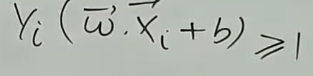 Yi (w⃗. x⃗i + b) ⩾ 1